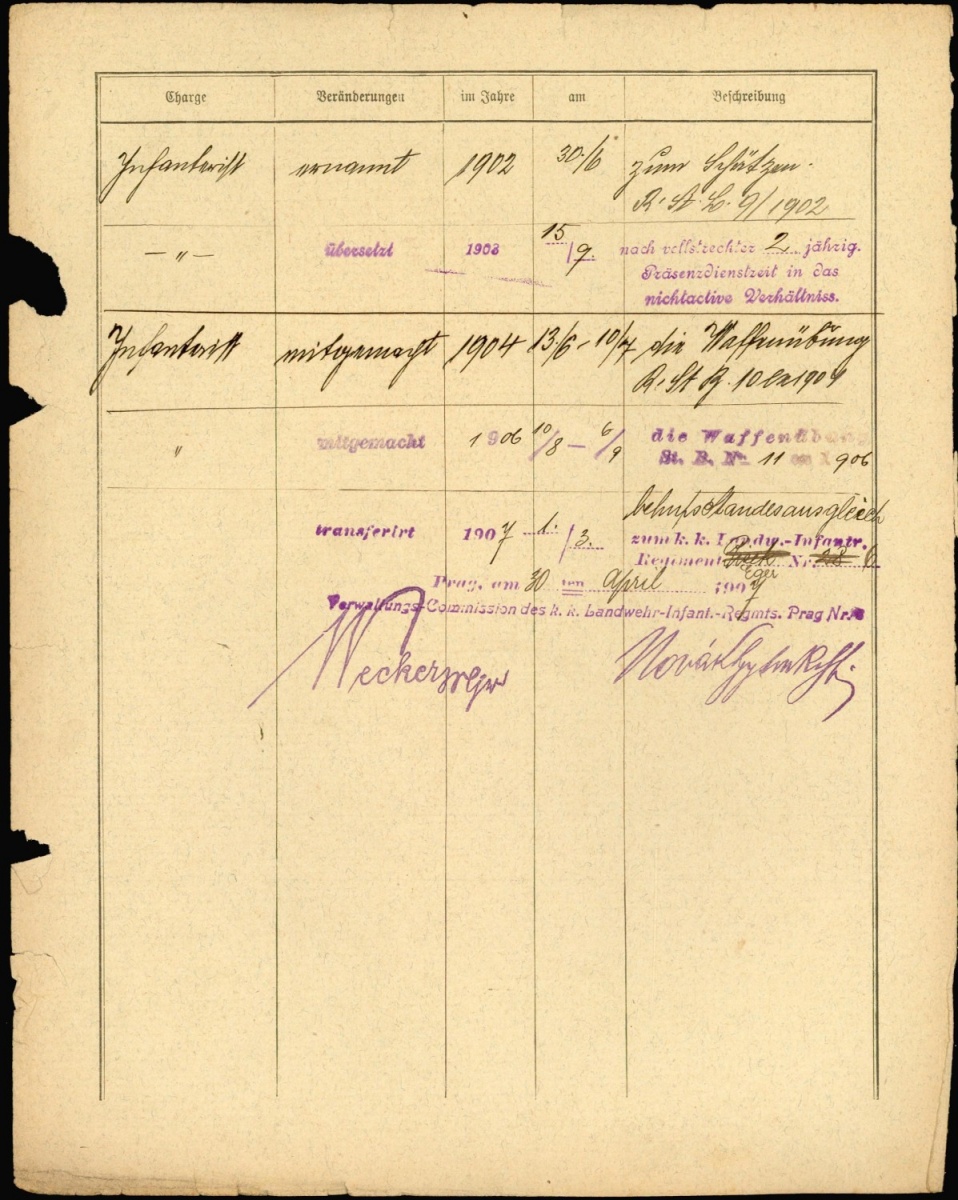 Charge Veränderungen im Jahre am Beschreibung
Infanterist ernannt 1902 30./6 zum Schützen.
R. St. B. 9/1902
— „ — übersetzt 1903 15/9. nach vollstreckter 2 jährig.
Präsenzdienstzeit in das
nichtactive Verhältniss.
Infanterist mitgemacht 1904 13/6 - 10/7 die Waffenübung
R. St. B. 10 1904
„ mitgemacht 1906 10/8 — 6/9 die Waffenübung
St. B. Nr. 11 1906
behufs Standesausgleich
transferirt 1907 1./3. zum k. k. Landw.-Infantr.
Regiment Nr. 28 6
Eger
Prag, am 30 ten April 1907
Verwaltungs-Commission des k. k. Landwehr-Infant.-Regmts. Prag Nr. 8
Novák